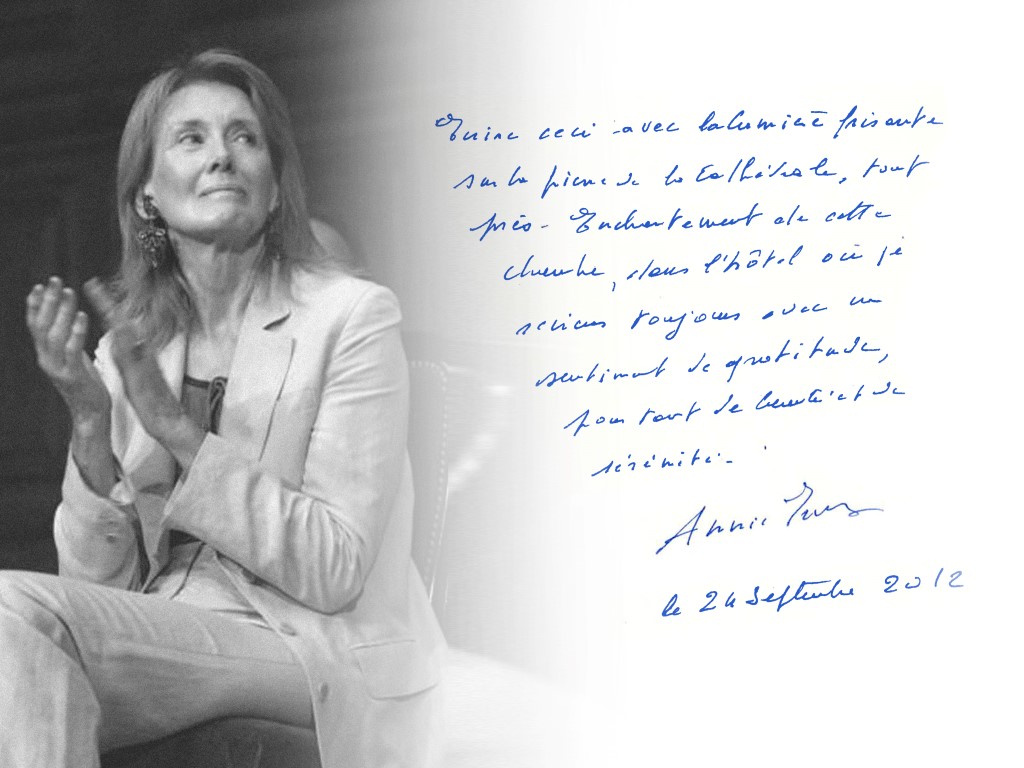 Écrire ceci avec la lumière frisante
sur la pierre de la Cathédrale, tout
près - Enchantement de cette
chambre, dans l'hôtel où je
reviens toujours avec un
sentiment de gratitude,
pour tant de beauté et de
sérénité -
Annie Ernaux
le 24 Septembre 2012